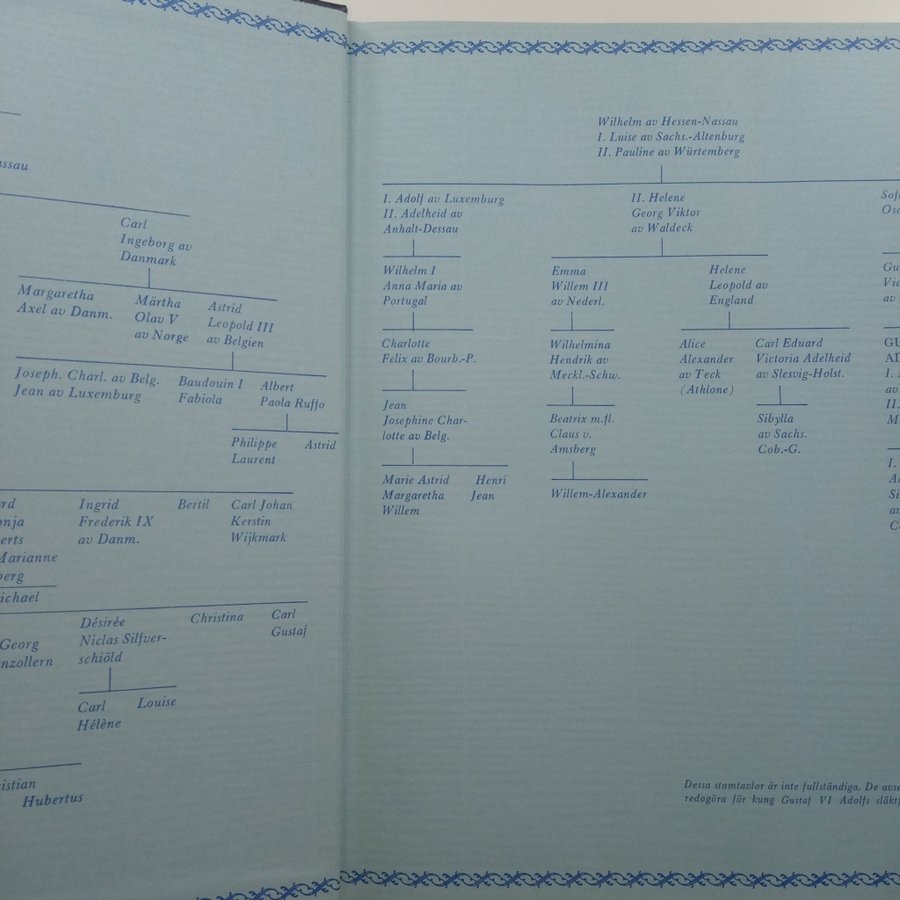 Carl
Ingeborg av
Danmark
Margaretha
Axel av Danm.
Märtha
Olav V
av Norge
Astrid
Leopold III
av Belgien
Joseph. Charl. av Belg.
Jean av Luxemburg
Baudouin I
Fabiola
Albert
Paola Ruffo
Philippe
Laurent
Astrid
Ingrid
Frederik IX
av Danm.
Bertil
Carl Johan
Kerstin
Wijkmark
Marianne
Désirée
Niclas Silfver-
schiöld
Christina
Carl
Gustaf
Georg
Carl
Hélène
Louise
Hubertus
Wilhelm av Hessen-Nassau
I. Luise av Sachs.-Altenburg
II. Pauline av Würtemberg
I. Adolf av Luxemburg
II. Adelheid av
Anhalt-Dessau
II. Helene
Georg Viktor
av Waldeck
Wilhelm I
Anna Maria av
Portugal
Emma
Willem III
av Nederl.
Helene
Leopold av
England
Charlotte
Felix av Bourb.-P.
Wilhelmina
Hendrik av
Meckl.-Schw.
Alice
Alexander
av Teck
(Athlone)
Carl Eduard
Victoria Adelheid
av Slesvig-Holst.
Jean
Josephine Char-
lotte av Belg.
Beatrix m.fl.
Claus v.
Amsberg
Sibylla
av Sachs.
Cob.-G.
Marie Astrid
Margaretha
Willem
Henri
Jean
Willem-Alexander
Dessa stamtavlor är inte fullständiga. De avse
redogöra för kung Gustaf VI Adolfs släkt